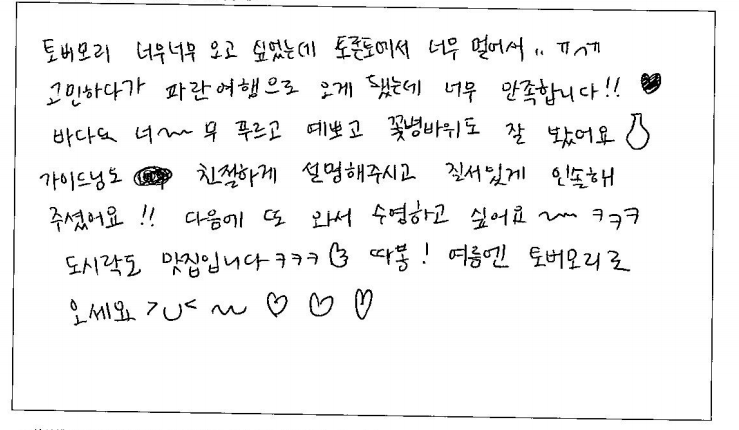 토버모리 너무너무 오고 싶었는데 토론토에서 너무 멀어서.. ㅠㅅㅠ
고민하다가 파란여행으로 오게 됐는데 너무 만족합니다!! ♥
바다도 너~~ 무 푸르고 예쁘고 꽃병바위도 잘 봤어요
가이드님도 친절하게 설명해주시고 질서있게 인솔해
주셨어요 !! 다음에 또 와서 수영하고 싶어요 ~~ ㅋㅋㅋ
도시락도 맛집입니다 ㅋㅋㅋ 따봉! 여름엔 토버모리로
오세요 >U< ~~ ♡ ♡ ♡